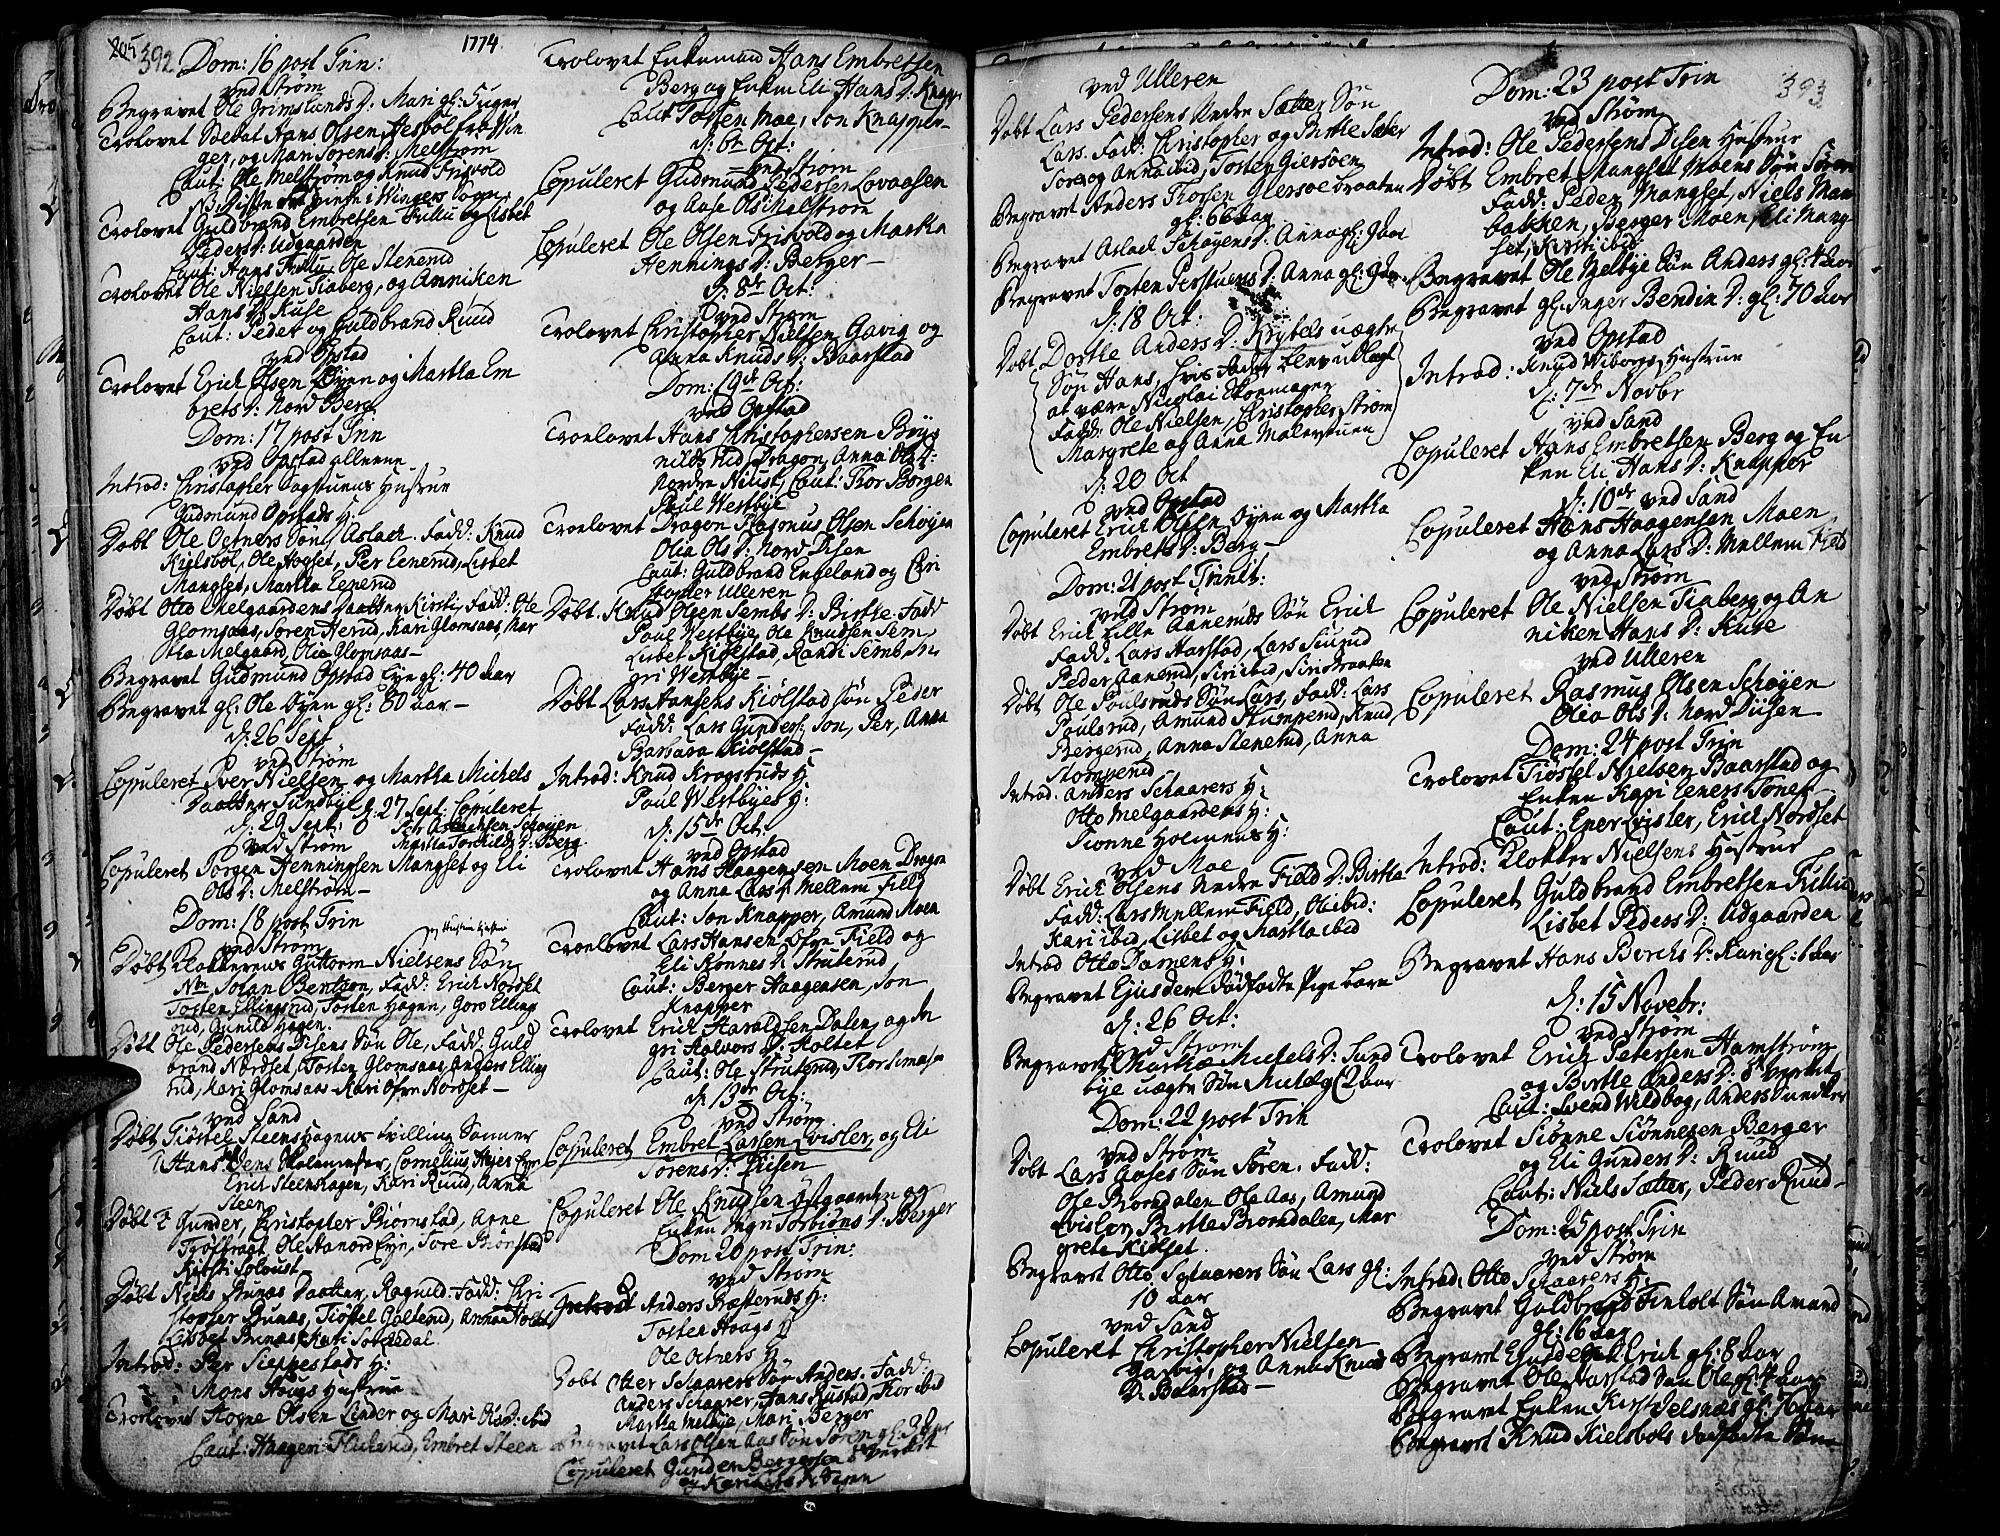 392
1774
Dom: 16 post Trin:
ved Strøm
Begravet Ole Grimslunds D: Mari gl: 5 uger
Trolovet Soldat Hans Olsen
ger, og Mari Sørens D: Melstrøm
Caut: Ole Melstrøm og Knud Frisvold
Trolovet Guldbrand Embretsen Fulu og Lisbet
Peders D: Udgaarden
Caut: Hans Fullu, Ole Stenerud
Trolovet Ole Nielsen Tiaberg, og Anniken
Hans D: Kuse
Caut: Peder og Guldbrand Ruud
ved Opstad
Trolovet Erich Olsen Øyen og Martha Em
brets D: Nord Berg
Dom: 17 post Trin
ved Opstad allene
Introd: Christopher Sagstuens Hustrue
Gudmund Opstads H:
Døbt Ole Octners Søn, Aslach. Fadd: Knud
Kielsbøl, Ole Hogset, Per Eenerud, Lisbet
Mangset, Martha Eenerud
Døbt Otto Melgaardens Daatter Kirsti, Fadd: Ole
Glomsaas, Søren Herud, Kari Glomsaas, Mar
Olia Melgaard, Olia Glomsaas
Begravet Gudmund Opstad Eye gl: 40 aar
Begravet gl: Ole Øyen gl: 80 aar
d: 26 Sept
ved Strøm
Copuleret Iver Nielsen og Martha Michels
Daatter Sundbye d: 27 Sept: Copuleret
d: 29 Sept:
Martha Torkilds D: Berg
ved Strøm
Copuleret Jørgen Henningsen Mangset og Eli
Ols D: Melstrøm
Dom: 18 post Trin
ved Strøm
Døbt Klokkerens Guttorm Nielsens Søn
Nm Johan Bentzon, Fadd: Erich Nordset
Tosten Ellingsrud, Tosten Hagen, Goro Elling
rud, Gunild Hagen.
Døbt Ole Pedersens Disens Søn Ole, Fadd: Guld
brand Nordset, Tosten Glomsaas, Anders Elling
rud, Kari Glomsaas Kari Øfre Nordset
ved Sand
Døbt Tiøstel Steenshagens tvilling Sønner
1 Hans
Erich Steenshagen, Kari Ruud, Anna
Steen
Døbt 2 Gunder, Christopher Biørnstad, Arne
Kirsti Soloust
Døbt Niels Bunæs Daatter, Ragnild. Fadd: Chri
stopher Bunæs, Tiøstel Galterud, Anna Holt
Lisbet Bunæs, Kari Soknedal
Introd: Per Sieppestads H:
Mons Hougs Hustrue
Trolovet Hogne Olsen Linder og Mari Ols D: ibid
Caut: Haagen Fluterud, Embret Steen
Trolovet Enkemand Hans Embretsen
Berg og Enken Eli Hans D: Knapp
Caut Tosten Moe, Jon Knapper
d: 6te Oct:
ved Strøm
Copuleret Gudmund Pedersen Lovaasen
og Aase Ols Melstrøm
Copuleret Ole Olsen Frisvold og Martha
Hennings D: Berger
d: 8de Oct:
ved Strøm
Trolovet Christopher Nielsen Garvig og
Anna Knuds D: Baarstad
Dom: 19de Oct:
ved Opstad
Troelovet Hans Christophersen Bryg
nilds Hid Dragon, Anna Ols D:
Nordre Neust, Caut: Thor Børgen
Paul Westbye
Troelovet Dragon Rasmus Olsen Schøyen
Olia Ols D: Nord Disen
Caut: Guldbrand Engeland og Chri
stopher Ulleren
Døbt. Knud Olsen Sembs D: Birthe. Fadd
Poul Westbye, Ole Knudsen Sem
Lisbet Kiølstad, Randi Semb, In
gri Westbye
Døbt Lars Hansens Kiølstad Søn Peder
Fadd: Lars Gunders: Jon, Per, Anna
Barbara Kiølstad
Introd: Knud Krogstruds H:
Paul Westbyes H:
d: 15de Oct
ved Opstad
Trolovet Hans Haagensen Moen Dragon
og Anna Lars D: Mellem Field
Caut: Jon Knapper, Amund Moen
Troelovet Lars Hansen Øfre Field og
Eli Tonnes D: Struterud
Caut: Berger Haagensen, Jon
Knapper
Trolovet Erich Haraldsen Dalen, og In
gri Halvors D: Holtet
Caut: Ole Struterud, Thor
d: 13de Oct:
ved Strøm
Copuleret Embret Larsen Qvisler, og Eli
Sørens D: Diisen
Copuleret Ole Knudsen Østgaarden og
Enken Ingri Torbiøns D: Berger
Dom 20 post Trin:
ved Strøm
Introd Anders Præsteruds H:
Tosten Haags H
Ole Octners H
Døbt Otter Schaarers Søn Anders. Fadd:
Anders Schaarer, Hans Rustad, Thor ibid
Martha Melbye, Mari Berger
Begravet Lars Olsen Aas Søn Søren gl: 3 Uger
Copuleret Gunder Bergersen
og Kari
ved Ulleren
Døbt Lars Pedersens Nedre Sætter Søn
Lars. Fadd: Christopher og Birthe Sæter
Tore og Anna ibid, Tosten Giersøen
Begravet Anders Thorsen Giersøebraaten
gl: 66 aar
Begravet Aslach Schøyens D: Anna gl: 9 aar
Begravet Tosten Perstuens D: Anna gl: 9
d: 18 Oct:
Døbt Dorthe Anders D: Krybels uægte
Søn Hans, hvis Fader blev udlagt
at være Nicolai Skoemager
Fadd: Ole Nielsen, Christopher Strøm
Margrete og Anna Malerstuen
d: 20 Oct
ved Opstad
Copuleret Erich Olsen Øyen og Martha
Embrets D: Berg
Dom: 21 post Trinit:
ved Strøm
Døbt Erich Lille Aaneruds Søn Erich
Fadd: Lars Harstad, Lars Siurud
Peder Aanerud, Siri ibid, Siri Braaten
Døbt Ole Poulsruds Søn Lars, Fadd: Lars
Poulsrud, Amund Stumperud, Knud
Bergerud, Anna Stenerud, Anna
Stomperud
Introd. Anders Schaarers H:
Otto Melgaardens H:
Tionne Holmens H:
ved Moe
Døbt Erich Olsens Nedre Field D: Birtha
Fadd: Lars Mellem Field, Ole ibid:
Kari ibid, Lisbet og Martha ibid
Introd Otto Damens H:
Begravet Ejusdem dødfødte Pige barn
d: 26 Oct:
ved Strøm
Begravet Marthe Michels D: Sund
bye uægte Søn Michel gl: 2 aar
Dom: 22 post Trin
ved Strøm
Døbt Lars Aases Søn Søren. Fadd:
Ole Bromdalen Ole Aas, Amund
Qvisler, Birthe Bromdalen, Mar
grete Kielset.
Begravet Otto Schaarers Søn Lars gl:
10 aar
ved Sand
Copuleret Christopher Nielsen
Garvig, og Anna Knud
D: Baarstad
393
Dom: 23 post Trin
ved Strøm
Introd: Ole Pedersens Disen Hustrue
Døbt Embret Mangset Moens Søn Søren
Fadd: Peder Mangset, Niels Man
bakken, Berger Moen, Eli Mang
set, Kirsti ibid
Begravet Ole Melbye Søn Anders gl: 4 aar
Begravet gl: Inger Bendix D: gl: 70 aar
ved Opstad
Introd: Knud Wiborgs Hustrue
d: 7de Novbr
ved Sand
Copuleret Hans Embretsen Berg og En
ken Eli Hans D: Knapper
d: 10de ved Sand
Copuleret Hans Haagensen Moen
og Anna Lars D: Mellem Field
ved Strøm
Copuleret Ole Nielsen Tiaberg, og An
niken Hans D: Kuse
ved Ulleren
Copuleret Rasmus Olsen Schøyen
Olia Ols D: Nord Diisen
Dom: 24 post Trin
Trolovet Tiøstel Nielsen Baarstad og
Enken Kari Eeners Toner
Caut: Ener Qvisler, Erich Nordset
Introd: Klokker Nielsens Hustrue
Copuleret Guldbrand Embretsen Fullu
Lisbet Peders D: Udgaarden
Begravet Hans Berchs D: Kari gl: 6 aar
d: 15 Novebr:
ved Strøm
Trolovet Erich Petersen Hamstrøm
og Birthe Anders D: Verket
Caut: Svend Wildbog, Anders Snedker
Trolovet Siønne Siønnesen Berger
og Eli Gunders D: Ruud
Caut: Niels Sætter, Peder Ruud
Dom: 25 post Trin
ved Strøm
Introd. Otto Schaarers H:
Begravet Guldbrand Finholt Søn Amund
gl: 16 aar
Begravet Ejusdem Erich gl: 8 aar
Begravet Ole Harstad Søn Ole gl: 4 aar
Begravet Enken Kirsti Velsnæs gl: 76 aar
Begravet Knud Kielsbøls dødfødte Søn